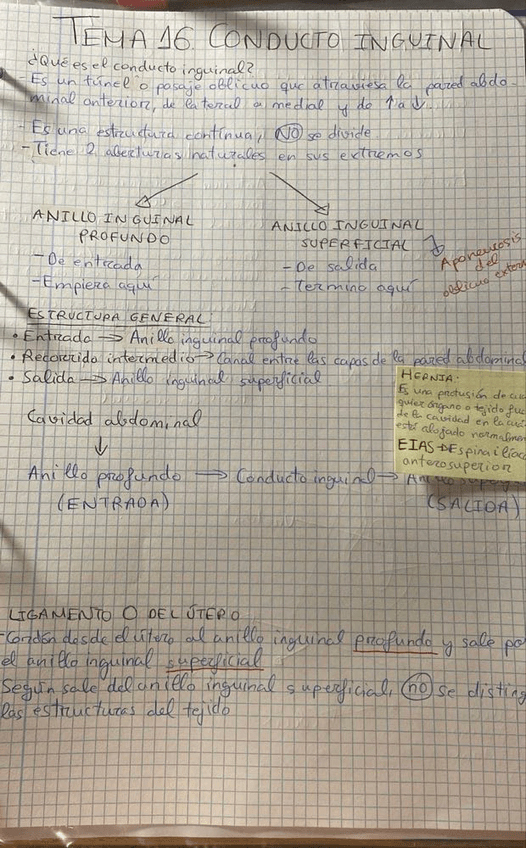 TEMA 16. CONDUCTO INGUINAL
¿Qué es el conducto inguinal?
- Es un túnel o pasaje oblicuo que atraviesa la pared abdo-
minal anterior, de lateral a medial y de ↑ a ↓.
- Es una estructura continua, NO se divide
- Tiene 2 aberturas naturales en sus extremos
ANILLO INGUINAL
PROFUNDO
- De entrada
- Empieza aquí
ANILLO INGUINAL
SUPERFICIAL
- De salida
- Termino aquí
Aponeurosis
del
oblicuo extern
ESTRUCTURA GENERAL:
• Entrada → Anillo inguinal profundo
• Recorrido intermedio → Canal entre las capas de la pared abdominal
• Salida → Anillo inguinal superficial
HERNIA:
Es una protusión de cual
quier órgano o tejido fue
de la cavidad en la cual
está alojado normalmen
EIAS → Espina ilíaca
anterosuperior
Cavidad abdominal
↓
Anillo profundo → Conducto inguinal →
(ENTRADA)
(SALIDA)
LIGAMENTO O DEL ÚTERO
- Cordón desde el útero al anillo inguinal profundo y sale po
el anillo inguinal superficial
Según sale del anillo inguinal superficial, no se disting
las estructuras del tejido